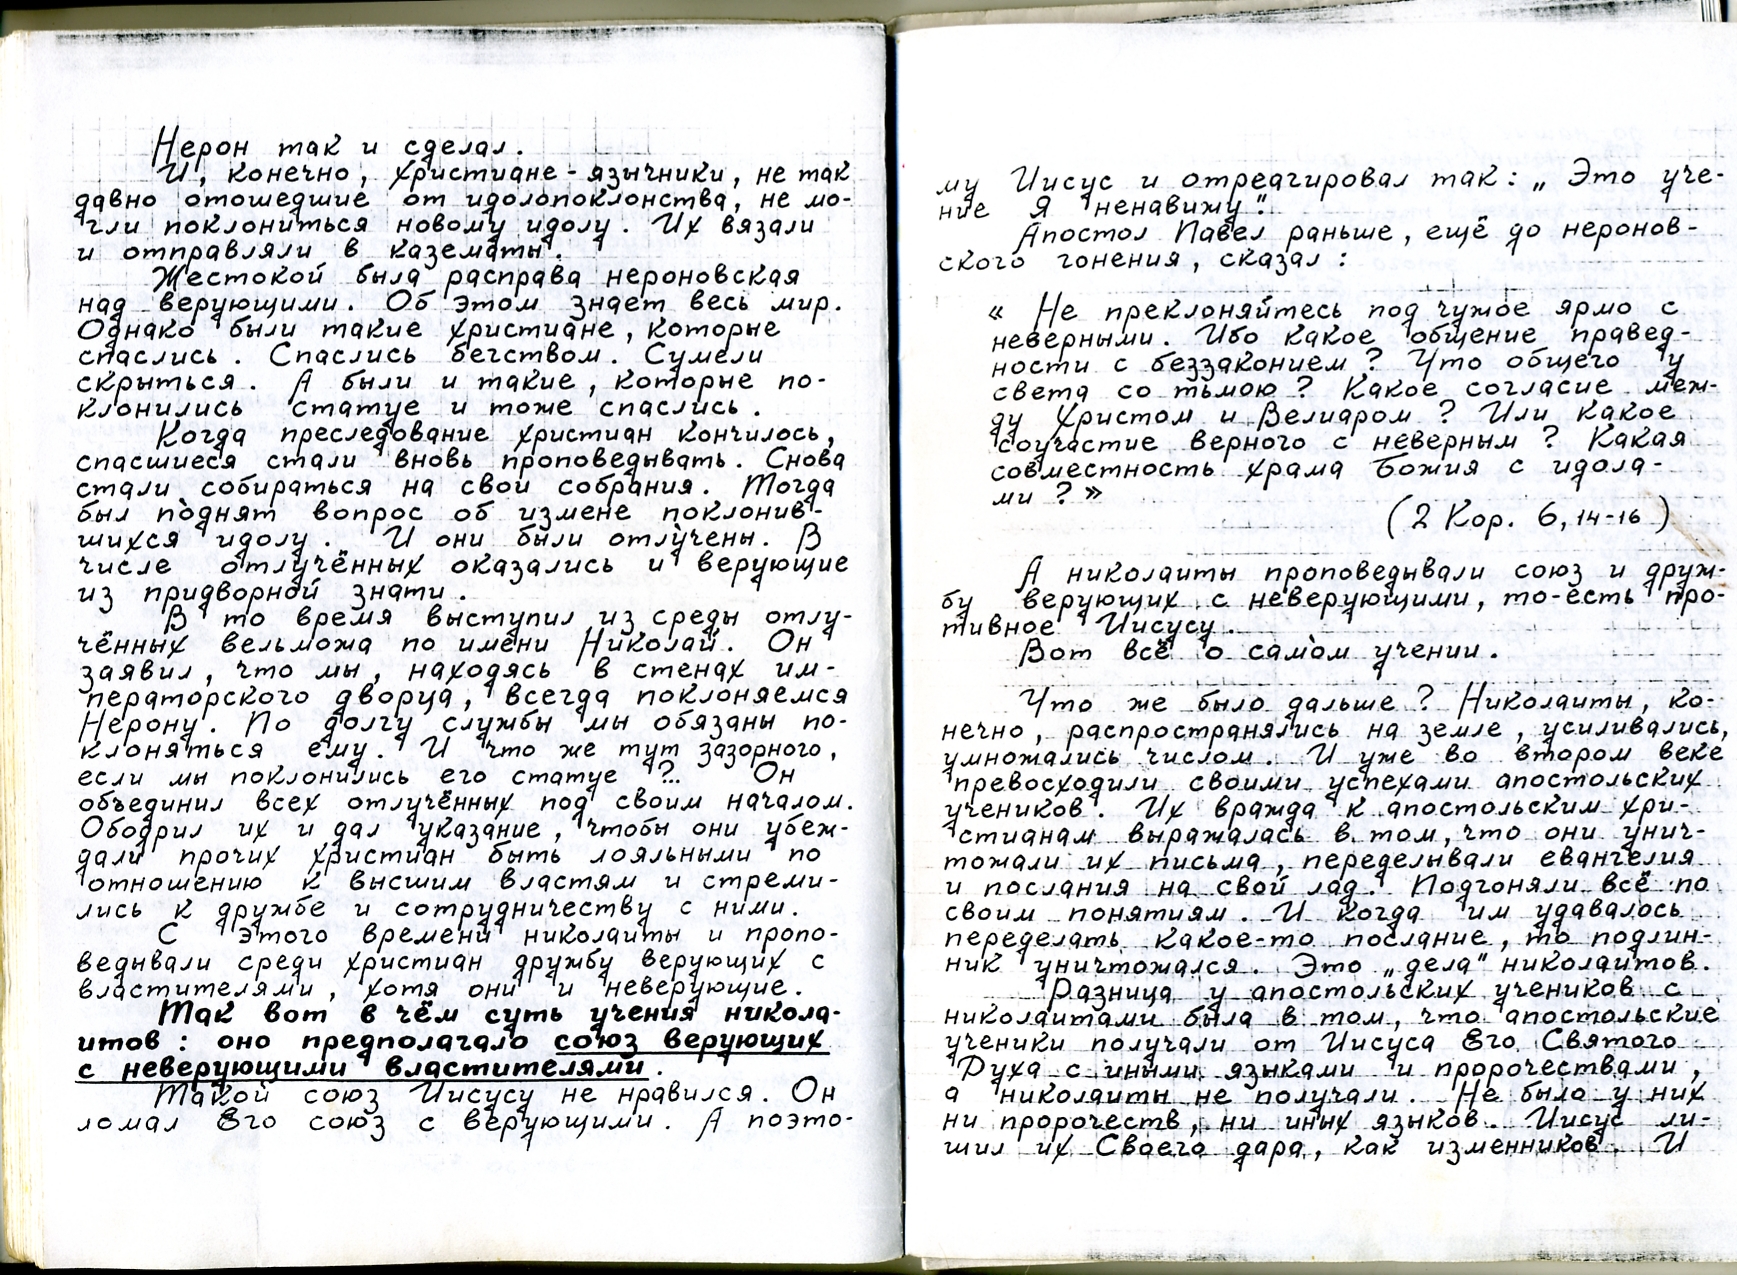 Нерон так и сделал.
И, конечно, христиане-язычники, не так
давно отошедшие от идолопоклонства, не мо-
гли поклониться новому идолу. Их вязали
и отправляли в казематы.
Жестокой была расправа нероновская
над верующими. Об этом знает весь мир.
Однако были такие христиане, которые
спаслись. Спаслись бегством. Сумели
скрыться. А были и такие, которые по-
клонились статуе и тоже спаслись.
Когда преследование христиан кончилось,
спасшиеся стали вновь проповедывать. Снова
стали собираться на свои собрания. Тогда
был поднят вопрос об измене поклонив-
шихся идолу. И они были отлучены. В
числе отлучённых оказались и верующие
из придворной знати.
В то время выступил из среды отлу-
чённых вельможа по имени Николай. Он
заявил, что мы, находясь в стенах им-
ператорского дворца, всегда поклоняемся
Нерону. По долгу службы мы обязаны по-
клоняться ему. И что же тут зазорного,
если мы поклонились его статуе ?.. Он
объединил всех отлучённых под своим началом.
Ободрил их и дал указание, чтобы они убеж-
дали прочих христиан быть лояльными по
отношению к высшим властям и стреми-
лись к дружбе и сотрудничеству с ними.
С этого времени николаиты и пропо-
ведывали среди христиан дружбу верующих с
властителями, хотя они и неверующие.
Так вот в чём суть учения никола-
итов: оно предполагало союз верующих
с неверующими властителями.
Такой союз Иисусу не нравился. Он
ломал Его союз с верующими. А поэто-
му Иисус и отреагировал так: „Это уче-
ние Я ненавижу".
Апостол Павел раньше, ещё до неронов-
ского гонения, сказал:
« Не преклоняйтесь под чужое ярмо с
неверными. Ибо какое общение правед-
ности с беззаконием? Что общего у
света со тьмою? Какое согласие меж-
ду Христом и Велиаром? Или какое
соучастие верного с неверным? Какая
совместность храма Божия с идола-
ми?»
(2 Кор. 6, 14-16)
А николаиты проповедывали союз и друж-
бу верующих с неверующими, то-есть про-
тивное Иисусу.
Вот всё о самом учении.
Что же было дальше? Николаиты, ко-
нечно, распространялись на земле, усиливались,
умножались числом. И уже во втором веке
превосходили своими успехами апостольских
учеников. Их вражда к апостольским хри-
стианам выражалась в том, что они унич-
тожали их письма, переделывали евангелия
и послания на свой лад. Подгоняли всё по
своим понятиям. И когда им удавалось
переделать какое-то послание, то подлин-
ник уничтожался. Это „дела" николаитов.
Разница у апостольских учеников с
николаитами была в том, что апостольские
ученики получали от Иисуса Его Святого
Духа с иными языками и пророчествами,
а николаиты не получали. Не было у них
ни пророчеств, ни иных языков. Иисус ли-
шил их Своего дара, как изменников. И